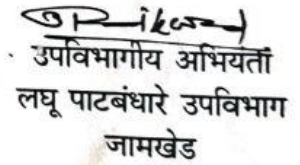 उपविभागीय अभियंता
लघू पाटबंधारे उपविभाग
जामखेड